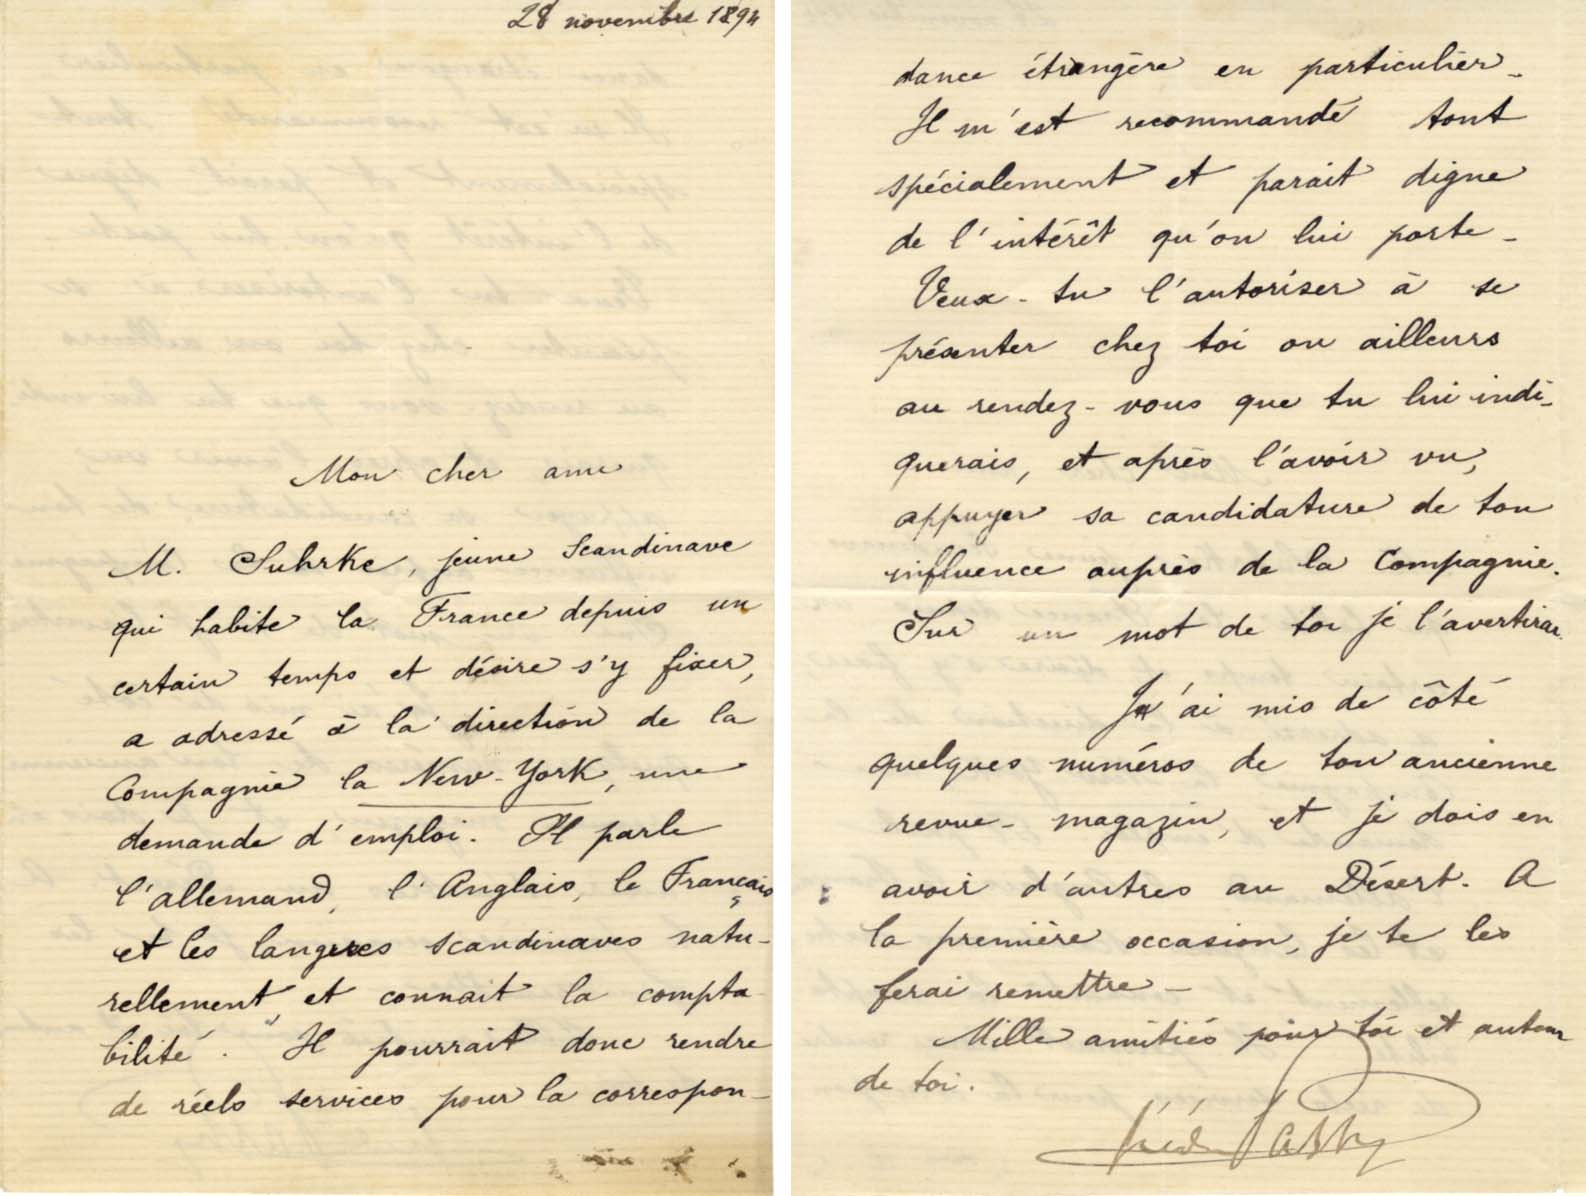 28 novembre 1894
Mon cher ami
M. Suhrke, jeune Scandinave
qui habite la France depuis un
certain temps et désire s'y fixer,
a adressé à la direction de la
Compagnie la New-York, une
demande d'emploi. Il parle
l'allemand, l'Anglais, le Français
et les langues scandinaves natu-
rellement, et connait la compta-
bilité. Il pourrait donc rendre
de réels services pour la correspon-
dance étrangère en particulier.
Il m'est recommandé tout
spécialement et parait digne
de l'intérêt qu'on lui porte -
Veux-tu l'autoriser à se
présenter chez toi ou ailleurs
au rendez-vous que tu lui indi-
querais, et après l'avoir vu,
appuyer sa candidature de ton
influence auprès de la Compagnie.
Sur un mot de toi je l'avertirai.
J'ai mis de côté
quelques numéros de ton ancienne
revue-magazin, et je dois en
avoir d'autres au Désert. A
la première occasion, je te les
ferai remettre -
Mille amitiés pour toi et autour
de toi.
Fréd Passy